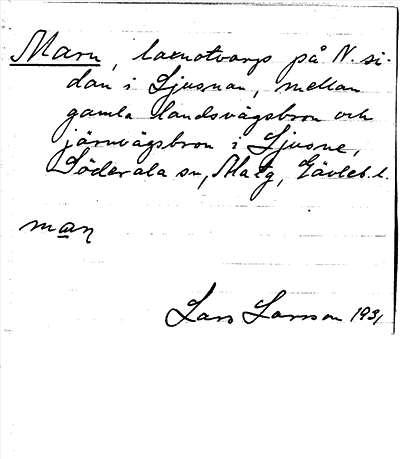 Marn, laxnotvarp på N. si-
dan i Ljusnan, mellan
gamla landsvägsbron och
järnvägsbron i Ljusne,
Söderala sn, Matg, Gävleb. l.
man
Lars Larsson 1931